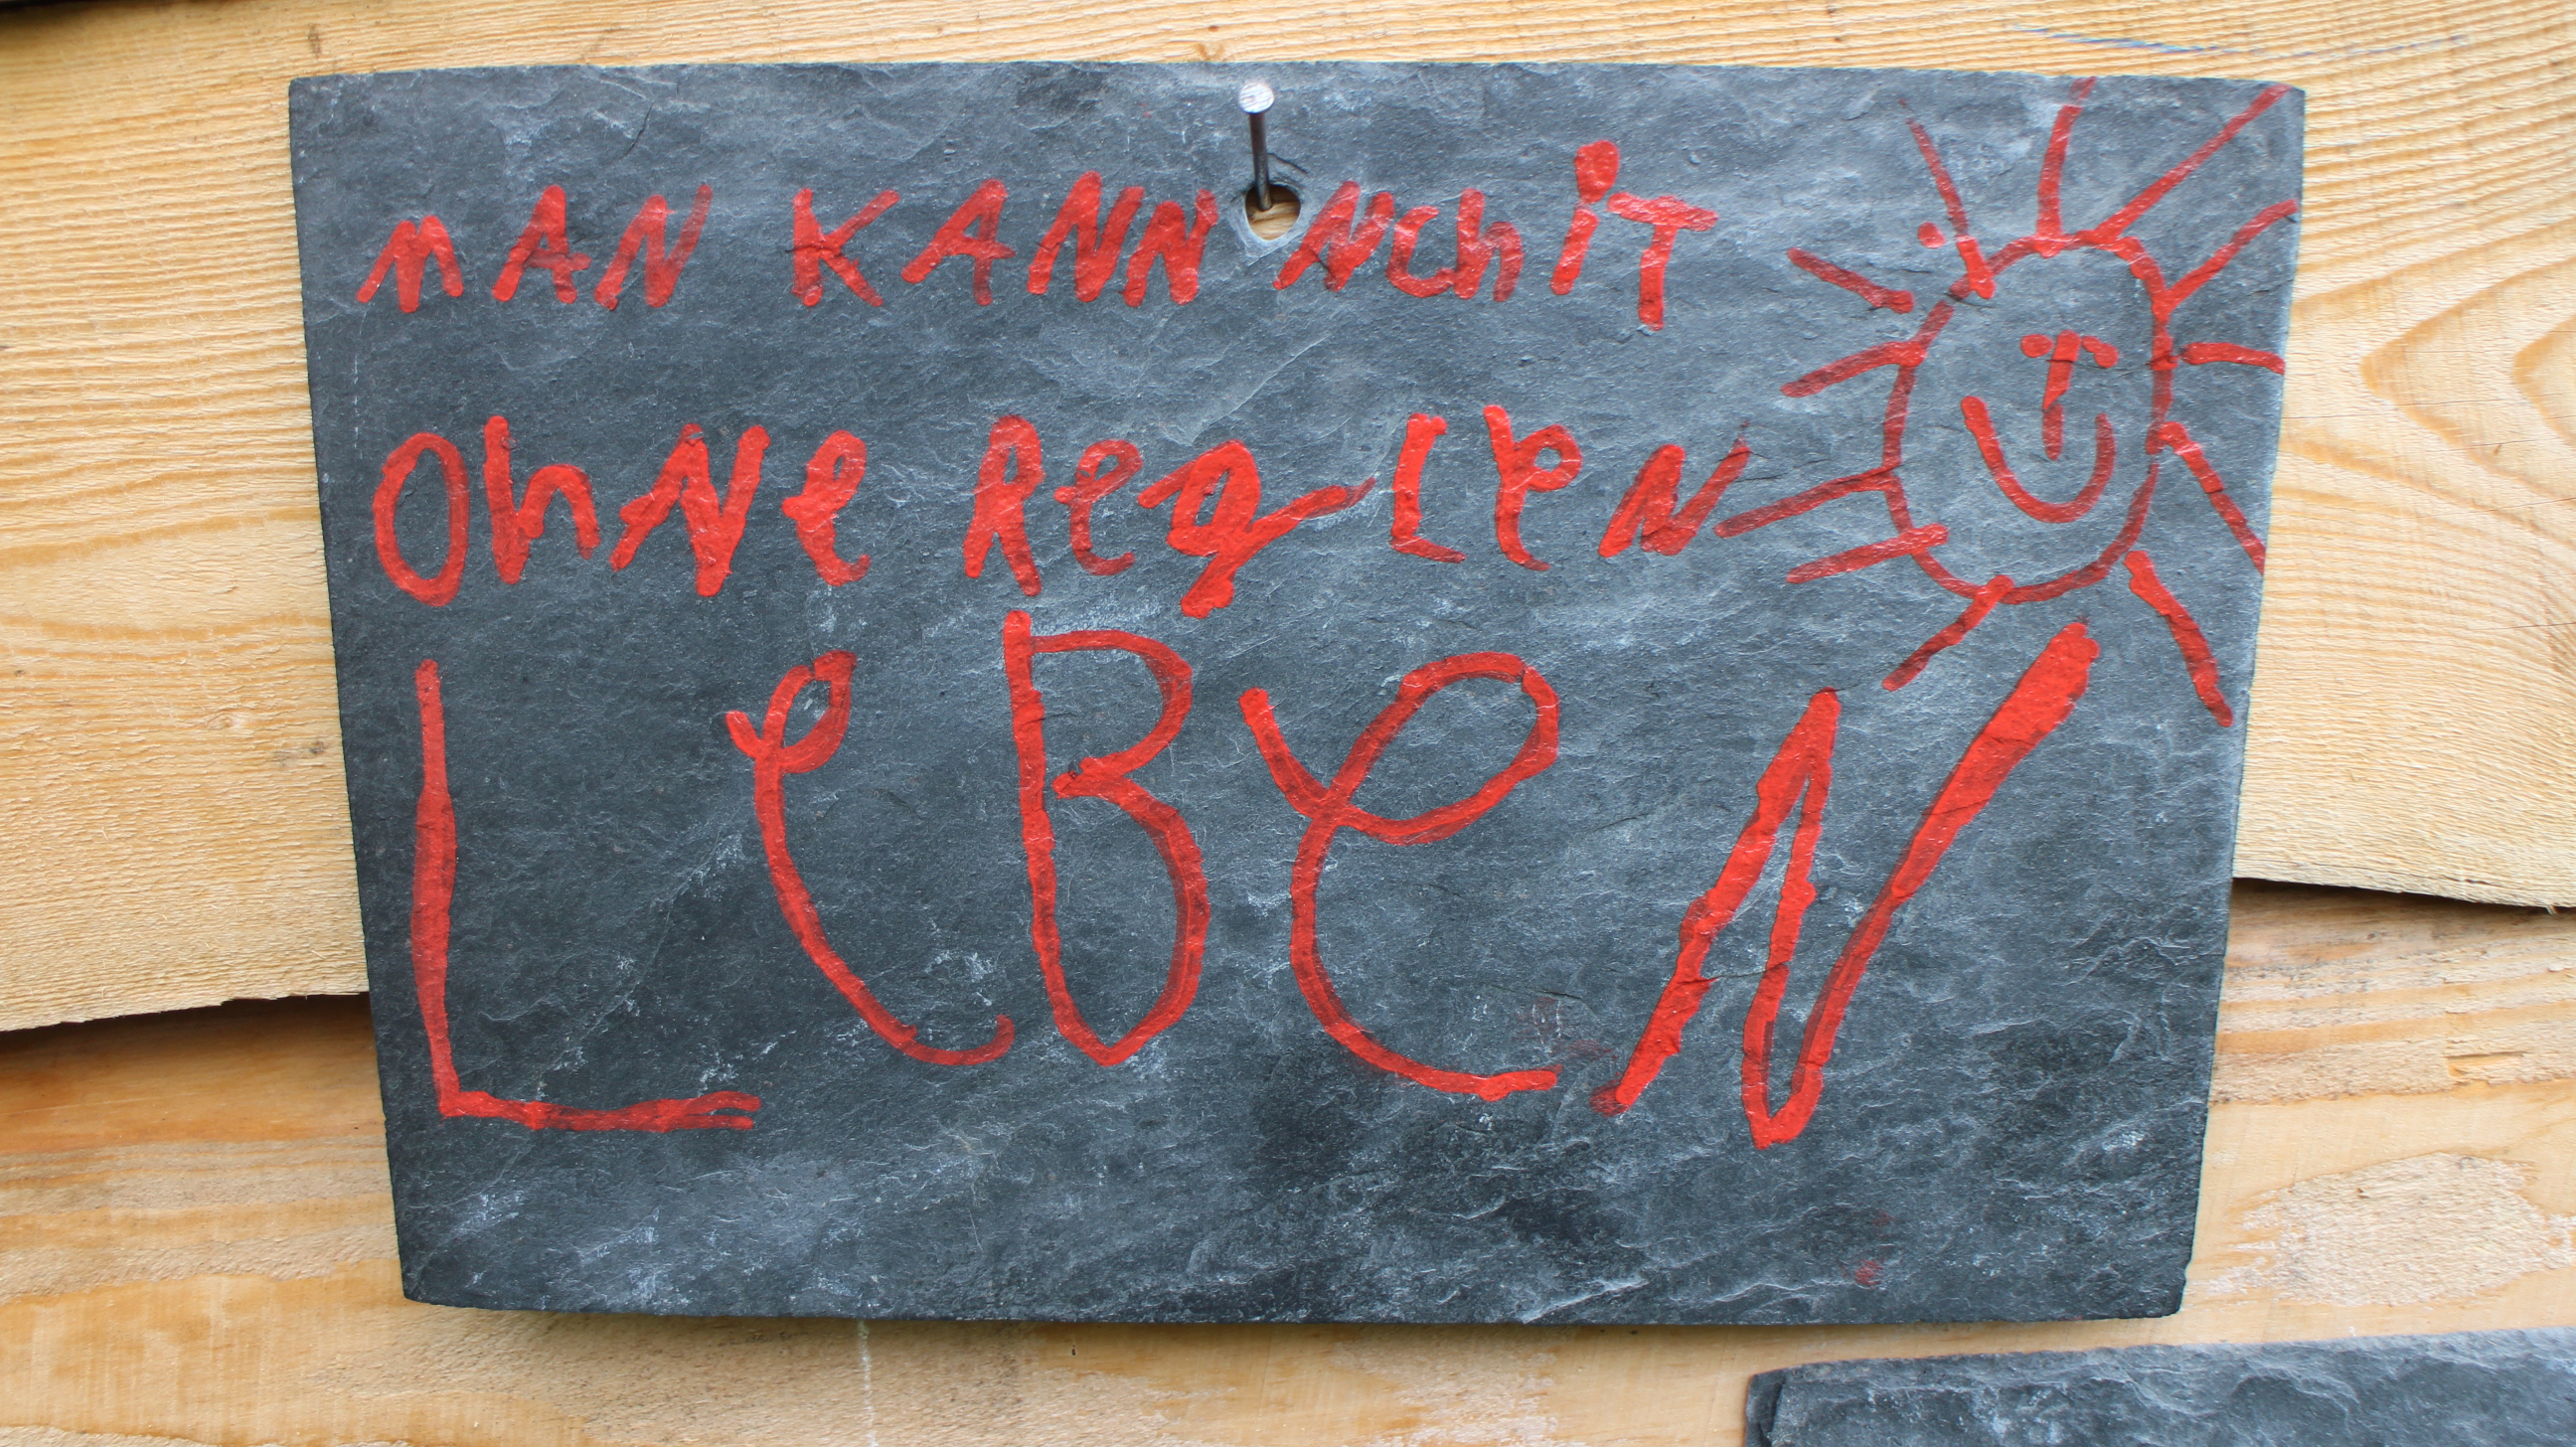 MAN KANN NChiT
OhNe RegLeN
LeBeN